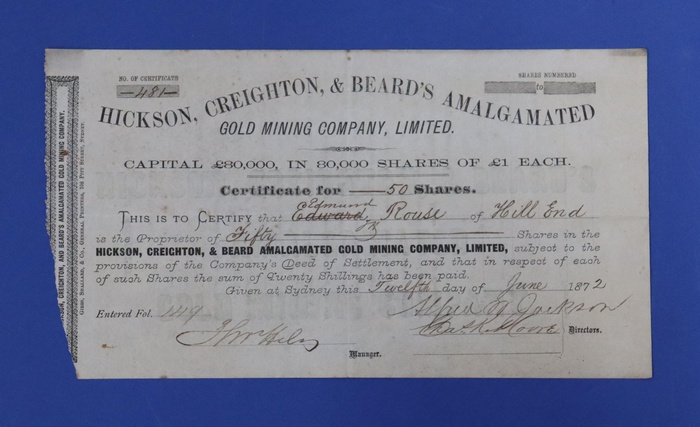 NO. OF CERTIFICATE
—481—
SHARES NUMBERED
to
HICKSON, CREIGHTON, & BEARD'S AMALGAMATED
GOLD MINING COMPANY, LIMITED.
CAPITAL £80,000, IN 80,000 SHARES OF £1 EACH.
Certificate for — 50 Shares.
Edmund
THIS IS TO CERTIFY that Edward Rouse of Hill End
is the Proprietor of Fifty Shares in the
HICKSON, CREIGHTON, & BEARD AMALGAMATED GOLD MINING COMPANY, LIMITED, subject to the
provisions of the Company's Deed of Settlement, and that in respect of each
of such Shares the sum of Twenty Shillings has been paid.
Given at Sydney this Twelfth day of June 1872
Entered Fol.
Alfred Jackson
Chas. K. Moore Directors.
Manager.
HICKSON, CREIGHTON, AND BEARD'S AMALGAMATED GOLD MINING COMPANY.
GIBBS, SHALLARD, & CO., GENERAL PRINTERS, 108 PITT STREET, SYDNEY.